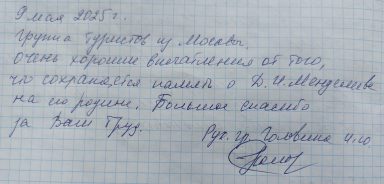 9 мая 2025 г.
Группа туристов из Москвы.
Очень хорошие впечатления от того,
что сохраняется память о Д. И. Менделееве
на его родине. Большое спасибо
за Ваш Труд.
Рук. гр. Головина